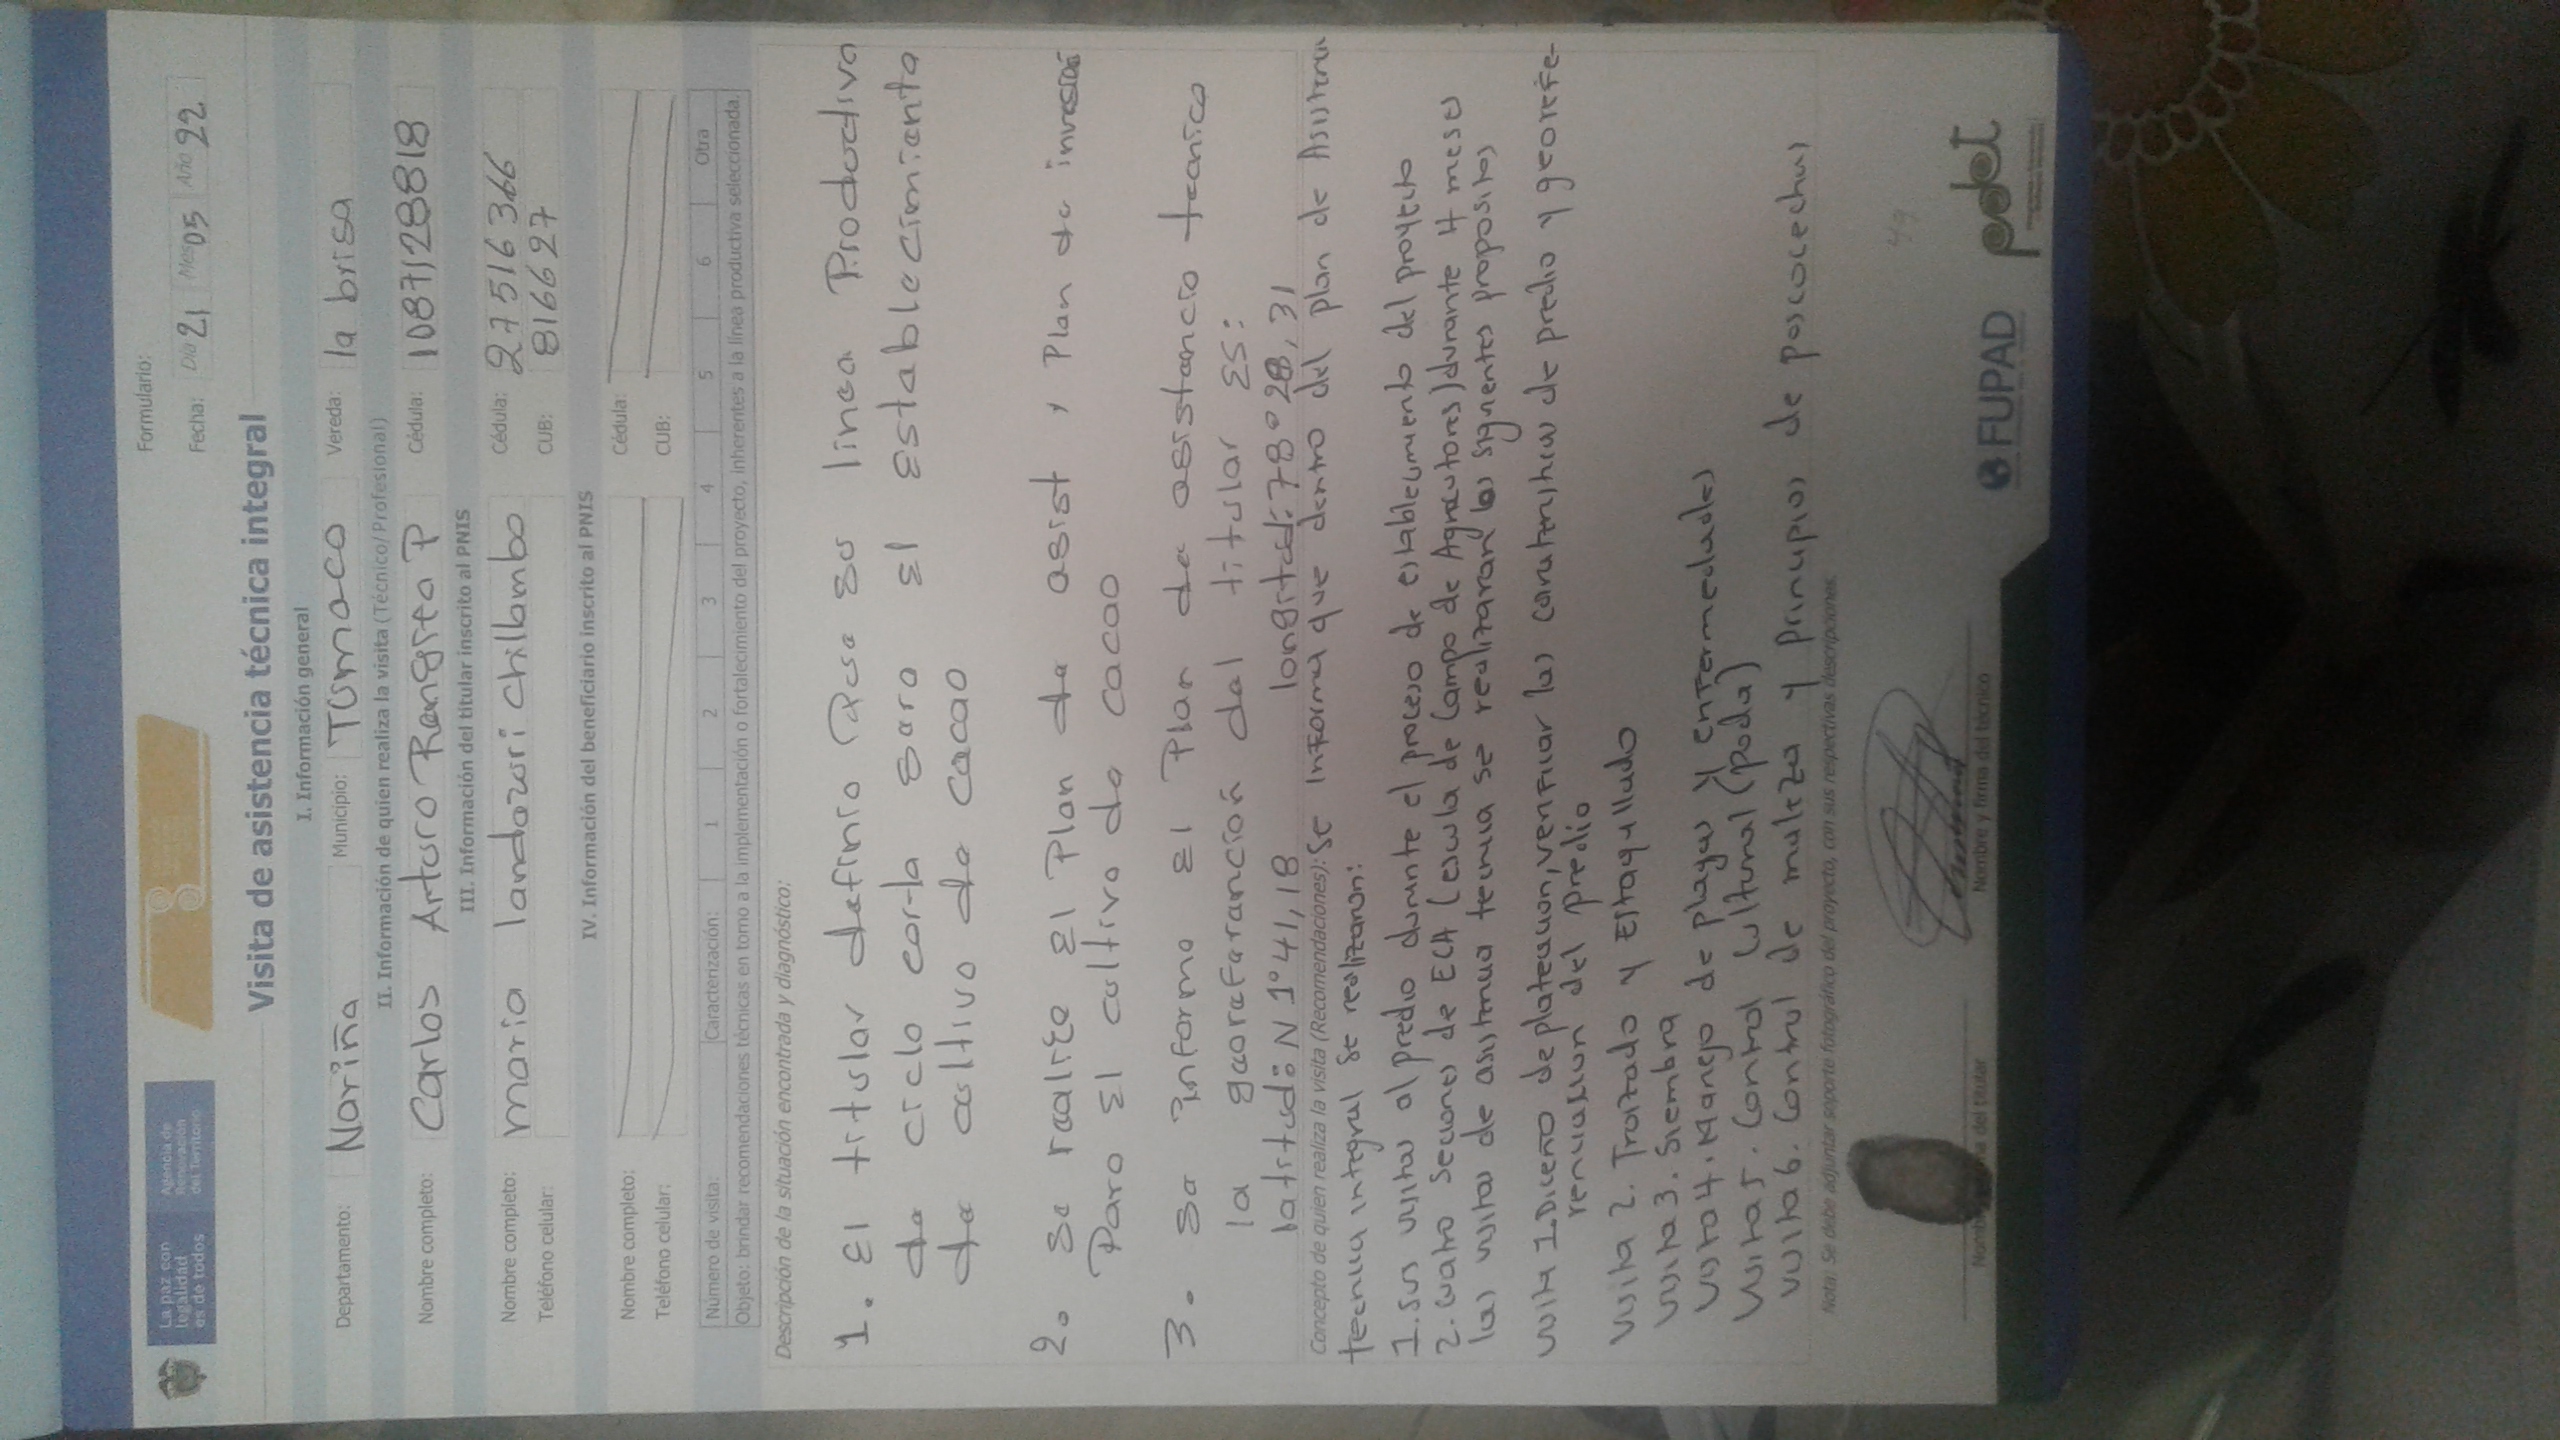 La paz con
legalidad
es de todos
Agencia de
Renovación
del Territorio
Formulario:
Fecha: Día 21 Mes 05 Año 22
Visita de asistencia técnica integral
I. Información general
Departamento: Nariño Municipio: Tumaco Vereda: la brisa
II. Información de quien realiza la visita (Técnico/Profesional)
Nombre completo: Carlos Arturo Rengifo P Cédula: 1087128818
III. Información del titular inscrito al PNIS
Nombre completo: maria landazuri chillambo Cédula: 27516366
Teléfono celular: CUB: 816627
IV. Información del beneficiario inscrito al PNIS
Nombre completo: Cédula:
Teléfono celular: CUB:
Número de visita: Caracterización: 1 2 3 4 5 6 Otra
Objeto: brindar recomendaciones técnicas en torno a la implementación o fortalecimiento del proyecto, inherentes a la línea productiva seleccionada.
Descripción de la situación encontrada y diagnóstico:
1. El titular definio que su linea Productiva
de ciclo corto sara El Establecimiento
de cultivo de cacao
2. Se realizo El Plan de asist y Plan de
Para El cultivo de cacao
3. Se informo El Plan de asistencio tecnico
la georeferanción del titular ES:
latitud: N 1° 41, 18 longitud: 78° 28, 31
Concepto de quien realiza la visita (Recomendaciones): Se informa que dentro del plan de Asistencia
tecnica integral se realizaron:
1. sus visitas al predio durante el proceso de establecimiento del proyecto
2. cuatro secciones de ECA (escula de campo de Agricutores) durante 4 meses
las visitas de asistencia tecnica se realizaran los siguientes propositos
visita 1. Diceño de plateacion, verificar las caracteristicas de predio y georefe-
renciacion del predio
visita 2. Trazado y Estaquillado
visita 3. Siembra
visita 4. Manejo de plagas y enfermedades
visita 5. Control cultural (poda)
visita 6. Control de maleza y principios de poscocechas
Nota: Se debe adjuntar soporte fotográfico del proyecto, con sus respectivas descripciones.
del titular
Nombre y firma del técnico
FUPAD
pdet